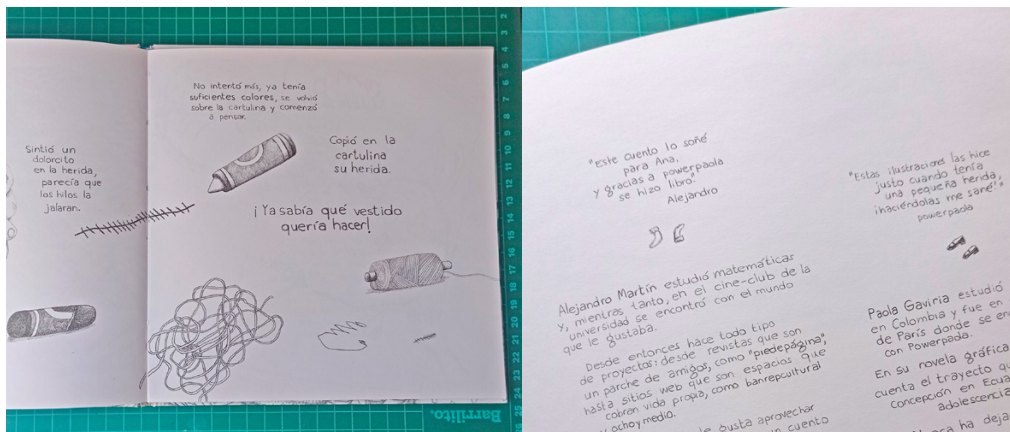 Sintió un
dolorcito
en la herida,
parecía que
los hilos la
jalaran.
No intentó más, ya tenía
suficientes colores, se volvió
sobre la cartulina y comenzó
a pensar.
Copió en la
cartulina
su herida.
¡Ya sabía qué vestido
quería hacer!
Barrilito.
"Este cuento lo soñé
para Ana,
y gracias a powerpaola
se hizo libro."
Alejandro
"Estas ilustraciones las hice
justo cuando tenía
una pequeña herida,
¡haciéndolas me sané!"
powerpaola
Alejandro Martín estudió matemáticas
y, mientras tanto, en el cine-club de la
universidad se encontró con el mundo
que le gustaba.
Desde entonces hace todo tipo
de proyectos: desde revistas que son
un parche de amigos, como "piedepágina",
hasta sitios web que son espacios que
cobran vida propia, como banrepcultural
y ochoymedio.
le gusta aprovechar
un cuento
Paola Gaviria estudió
en Colombia y fue en
de París donde se en
con Powerpaola.
En su novela gráfica
cuenta el trayecto qu
Concepción en Ecua
adolescencia
ha deja
2
3
4
5
6
7
8
9
10
11
12
13
14
15
16
17
18
19
20
21
22
23
24
25